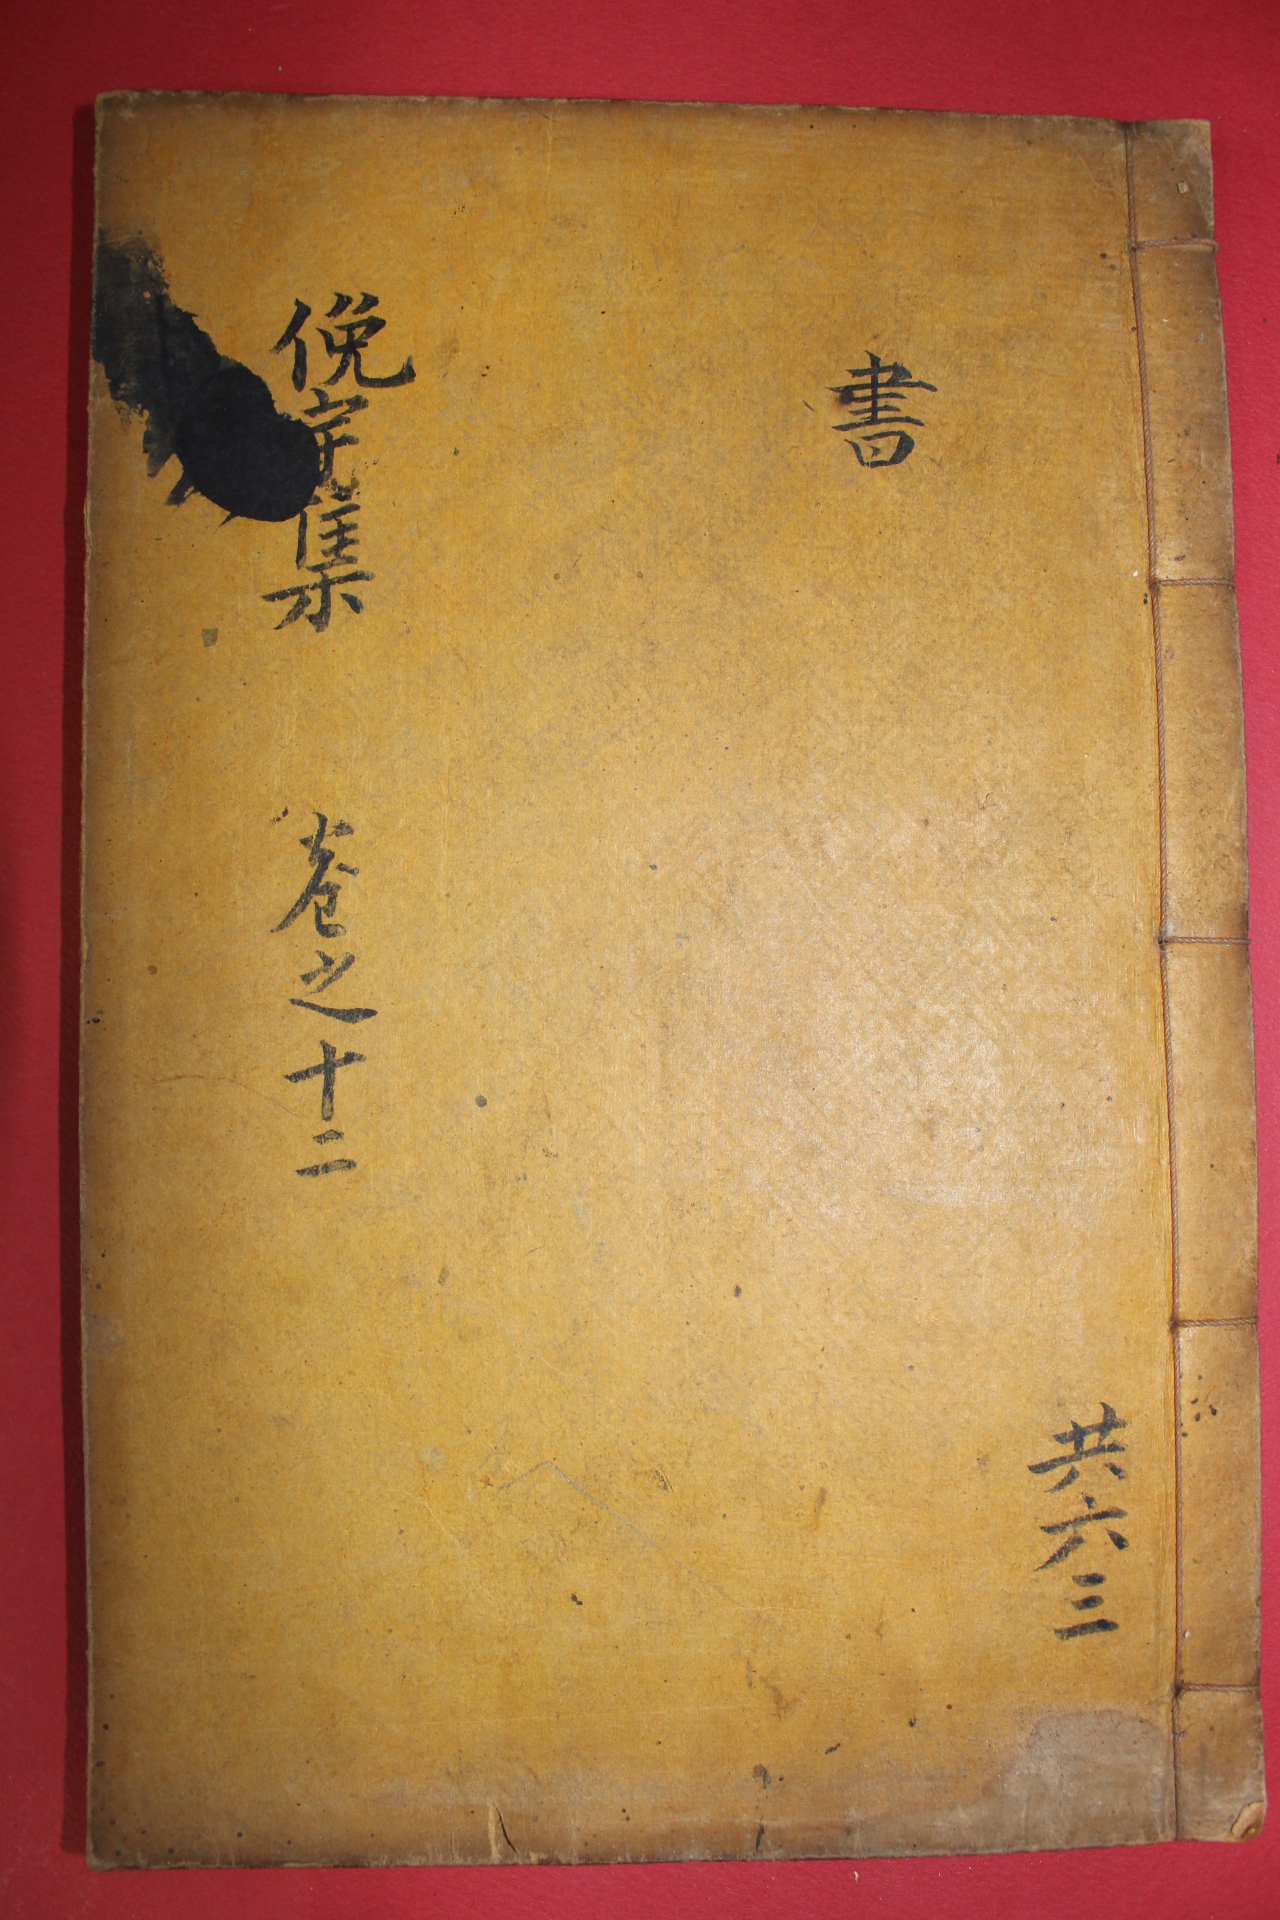 書
俛宇集 卷之十二
共六三